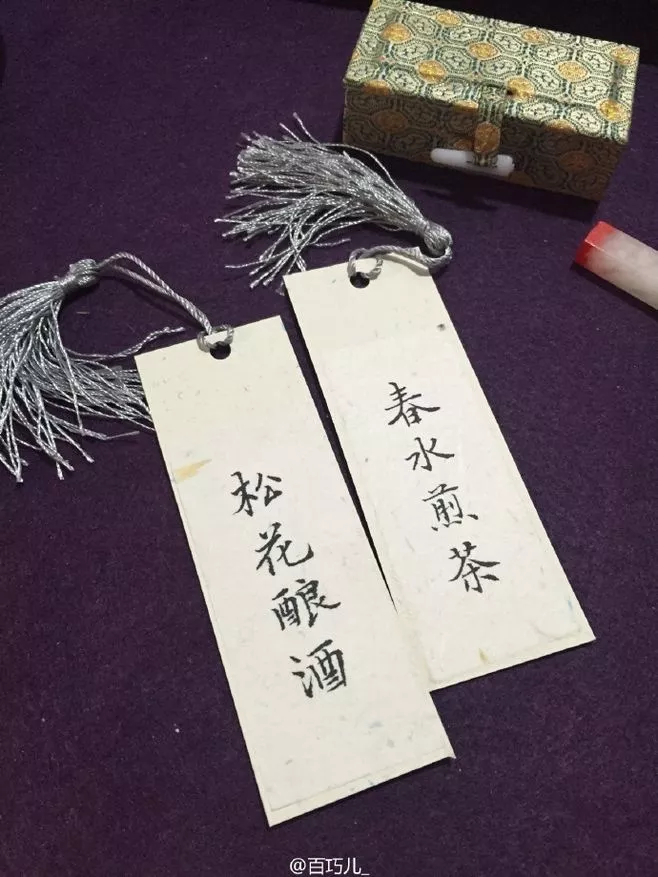 松花酿酒
春水煎茶
@百巧儿_